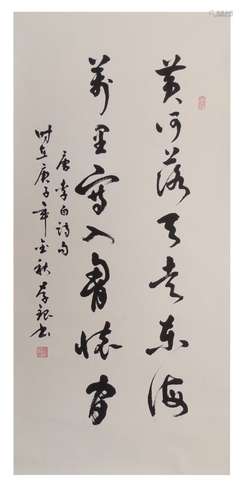 黄河落天走东海
万里写入胸怀间
唐李白诗句
时在庚子年金秋李银书